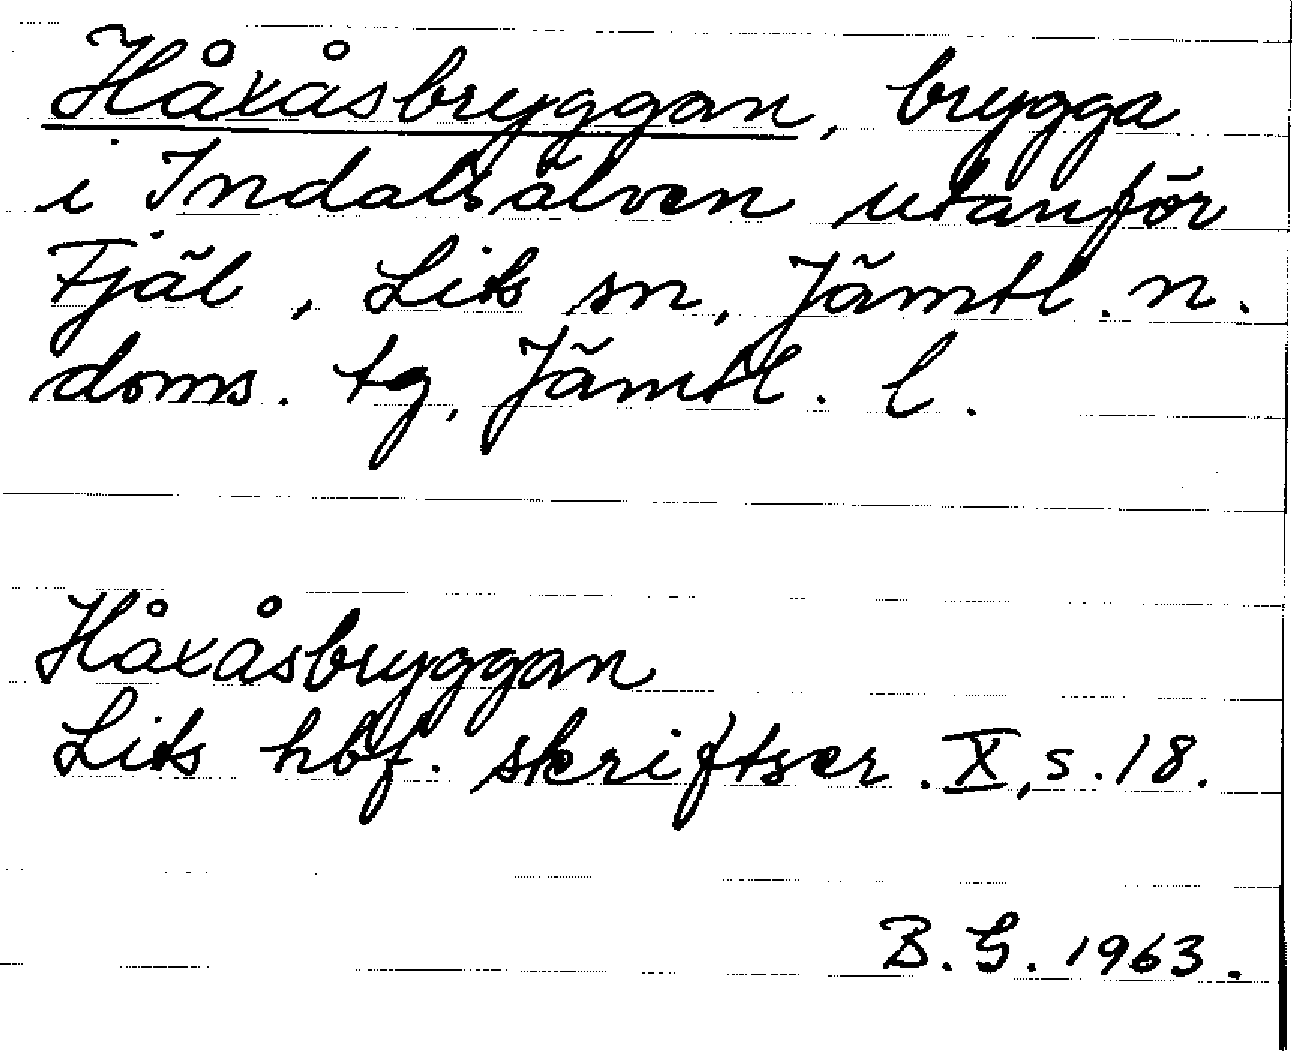 Håxåsbryggan, brygga
i Indalsälven utanför
Fjäl, Lits sn, Jämtl. n.
doms. tg, Jämtl. l.
Håxåsbryggan
Lits hbf. skriftser. X, s. 18.
B. G. 1963.